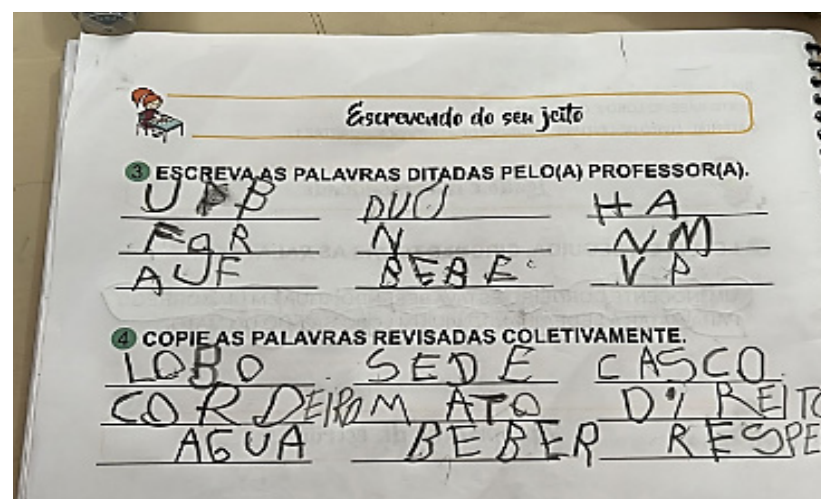 Escrevendo do seu jeito
3 ESCREVA AS PALAVRAS DITADAS PELO(A) PROFESSOR(A).
HA
FGR N NM
AUF BEBE VP
4 COPIE AS PALAVRAS REVISADAS COLETIVAMENTE.
LOBO SEDE CASCO
CORDEIRO MATO DIREITO
AGUA BEBER RESPE